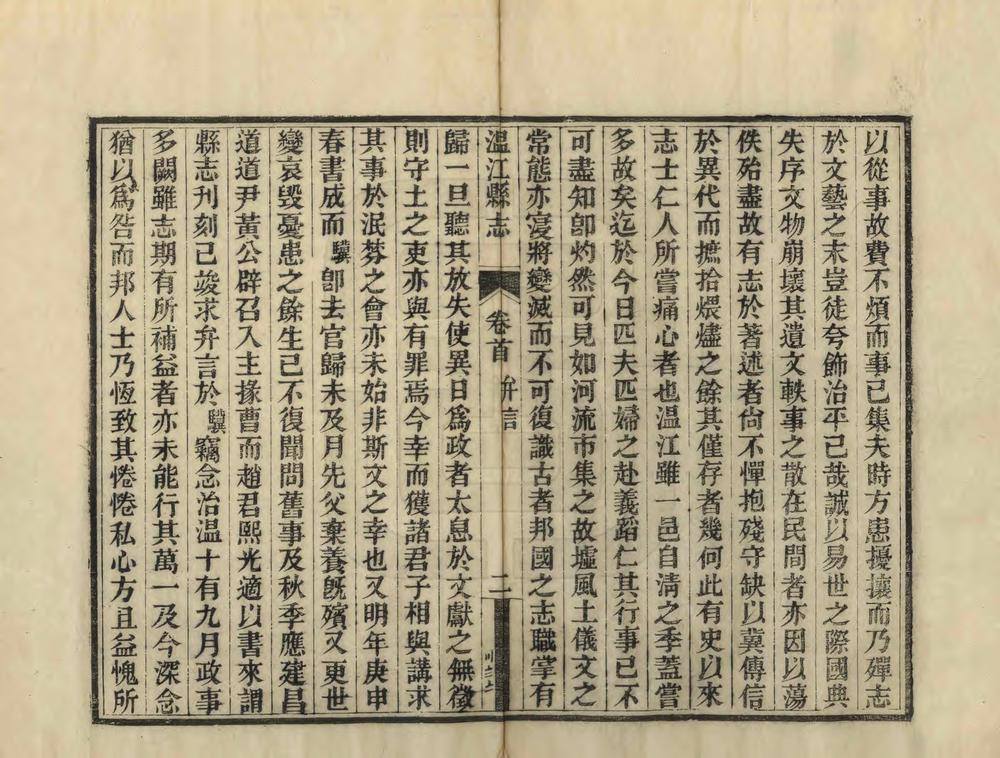 以從事故費不煩而事已集夫時方患擾攘而乃殫志
於文藝之末豈徒夸飾治平已哉誠以易世之際國典
失序文物崩壞其遺文軼事之散在民間者亦因以蕩
佚殆盡故有志於著述者尙不憚抱殘守缺以冀傳信
於異代而摭拾煨燼之餘其僅存者幾何此有史以來
志士仁人所嘗痛心者也溫江雖一邑自淸之季蓋嘗
多故矣迄於今日匹夫匹婦之赴義蹈仁其行事已不
可盡知卽灼然可見如河流市集之故墟風土儀文之
常態亦寖將變滅而不可復識古者邦國之志職掌有
溫江縣志 卷首 弁言 二
歸一旦聽其放失使異日爲政者太息於文獻之無徵
則守土之吏亦與有罪焉今幸而獲諸君子相與講求
其事於泯棼之會亦未始非斯文之幸也又明年庚申
春書成而驥卽去官歸未及月先父棄養旣殯又更世
變哀毀憂患之餘生已不復聞問舊事及秋季應建昌
道道尹黃公辟召入主掾曹而趙君熙光適以書來謂
縣志刊刻已竣求弁言於驥竊念治溫十有九月政事
多闕雖志期有所補益者亦未能行其萬一及今深念
猶以爲咎而邦人士乃恆致其惓惓私心方且益愧所